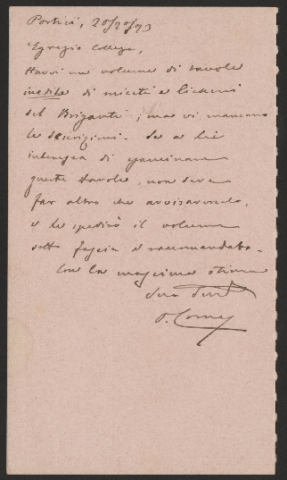 Portici, 20/10/93
Egregio Collega,
Havvi un volume di tavole
inedite di miceti e licheni
del Briganti; ma vi mancano
le descrizioni. Se a Lei
interessa di esaminare
queste tavole, non deve
far altro che avvisarmelo,
e le spedirò il volume
sotto fascia e raccomandato.
Con la massima stima
Suo Dev
O. Comes